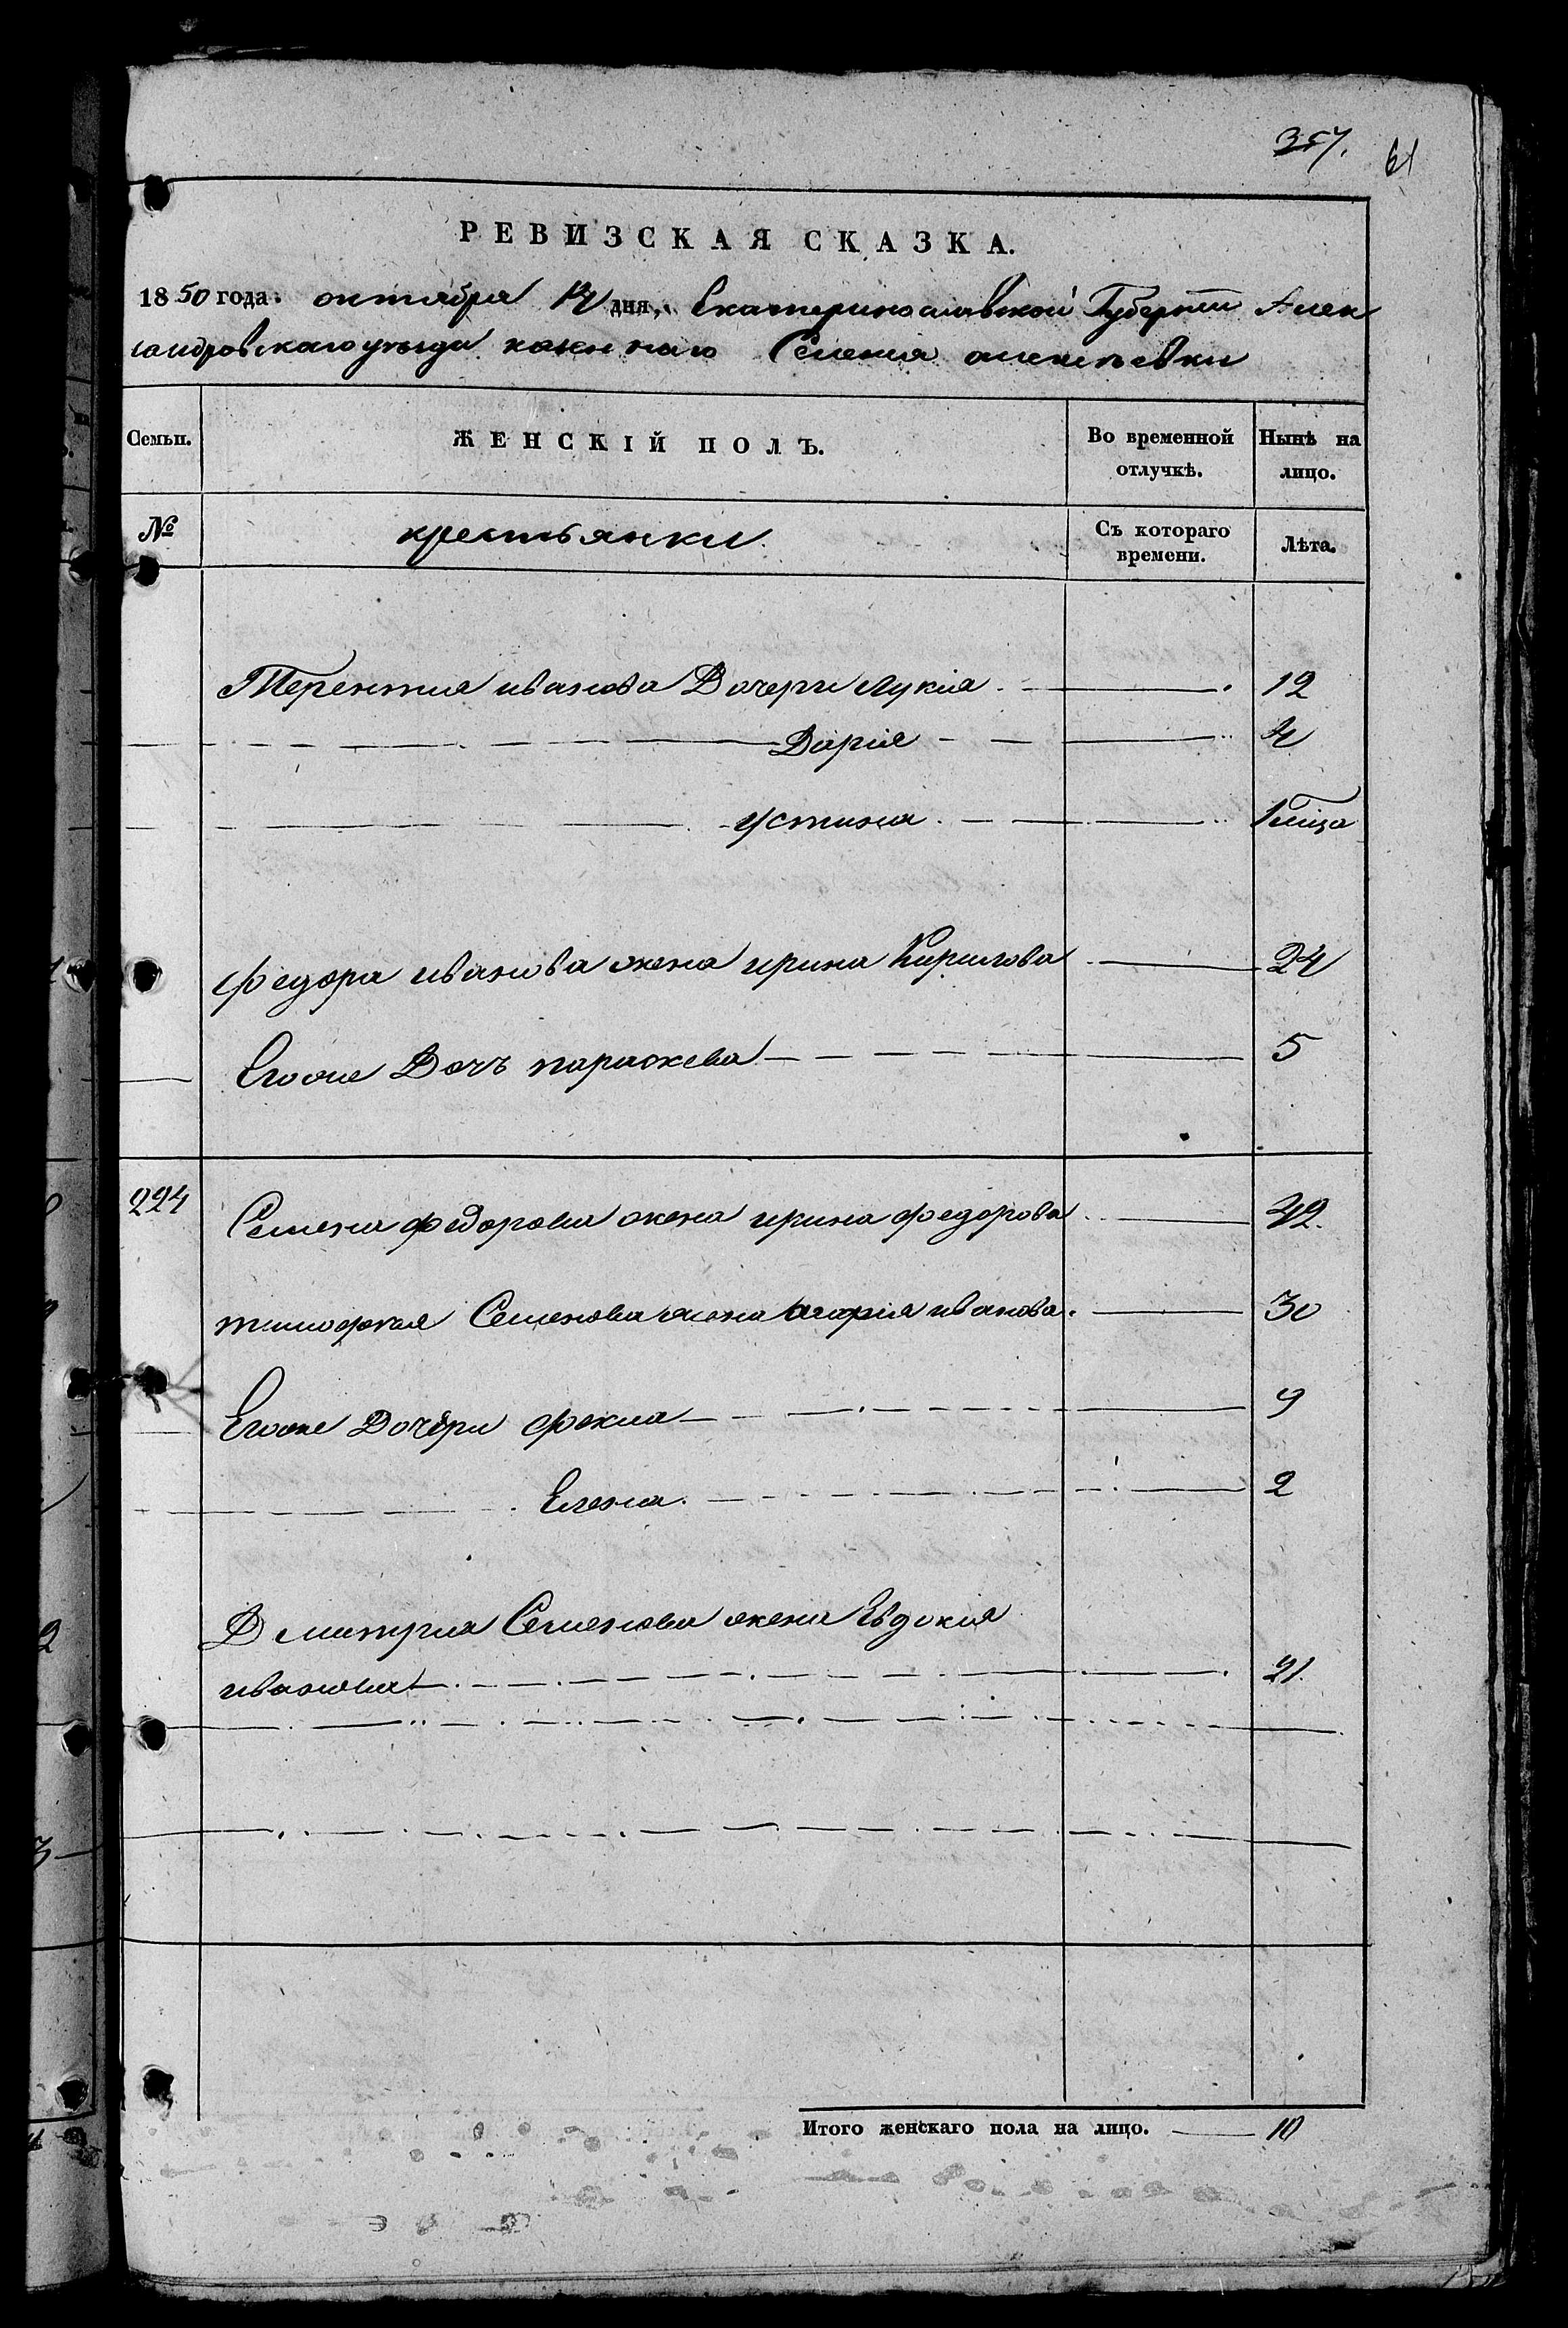 357. 61
РЕВИЗСКАЯ СКАЗКА.
1850 года. октября 14 дня, Екатеринославской Губерніи Алек
сандровскаго уезда казеннаго Селения алексеевки
Семьи. ЖЕНСКІЙ ПОЛЪ. Во временной отлучкѣ. Нынѣ на лицо.
№ крестьянки Съ котораго времени. Лѣта.
Терентия иванова Дочери Лукия 12
Дария 4
устина 1 мѣца
федора иванова жена ирина Кирилова 24
Егоже Дочь параскева 5
224 Семена федорова жена ирина федорова 42.
тимофея Семенова жена мария иванова. 30
Егоже Дочери фекла 9
Елена. 2
Дмитрия Семенова жена Евдокия
иванова 21.
Итого женскаго пола на лицо. 10